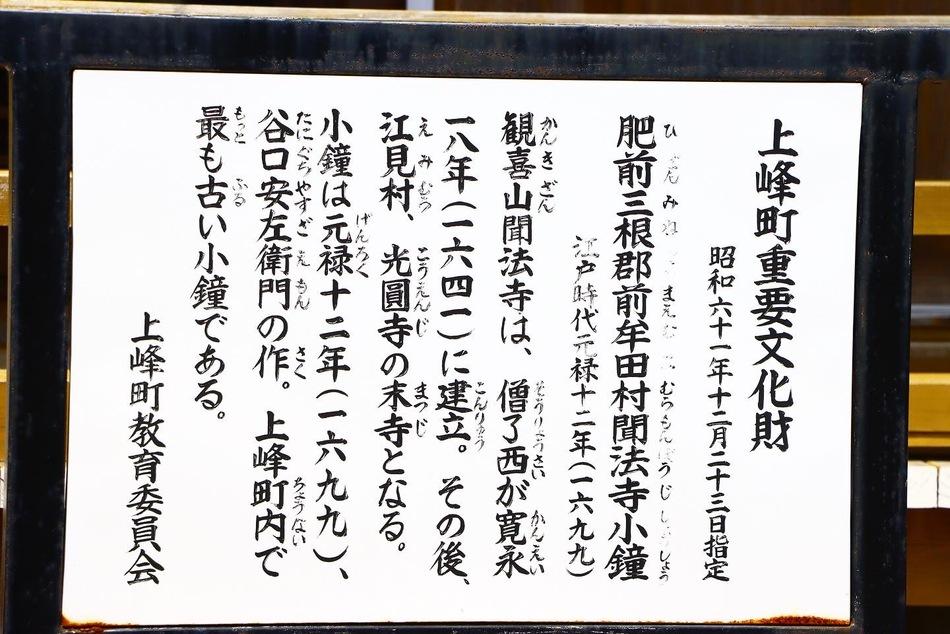 上峰町重要文化財
昭和六十一年十二月二十三日指定
肥前三根郡前牟田村聞法寺小鐘
江戸時代元禄十二年(一六九九)
観喜山聞法寺は、僧了西が寛永
一八年(一六四一)に建立。その後、
江見村、光圓寺の末寺となる。
小鐘は元禄十二年(一六九九)、
谷口安左衛門の作。上峰町内で
最も古い小鐘である。
上峰町教育委員会